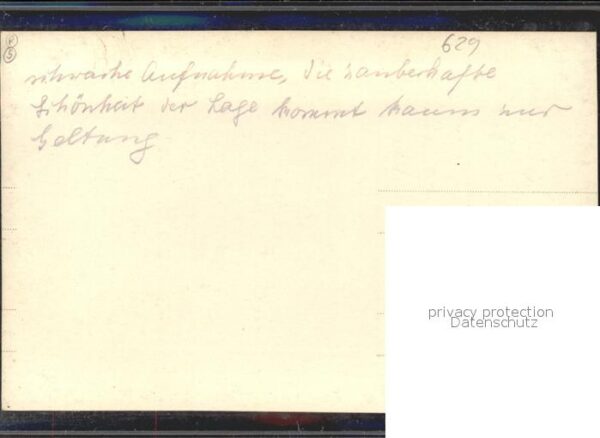 K
5
629
schwache Aufnahme, die zauberhafte
Schönheit der Lage kommt kaum zur
Geltung
privacy protection
Datenschutz